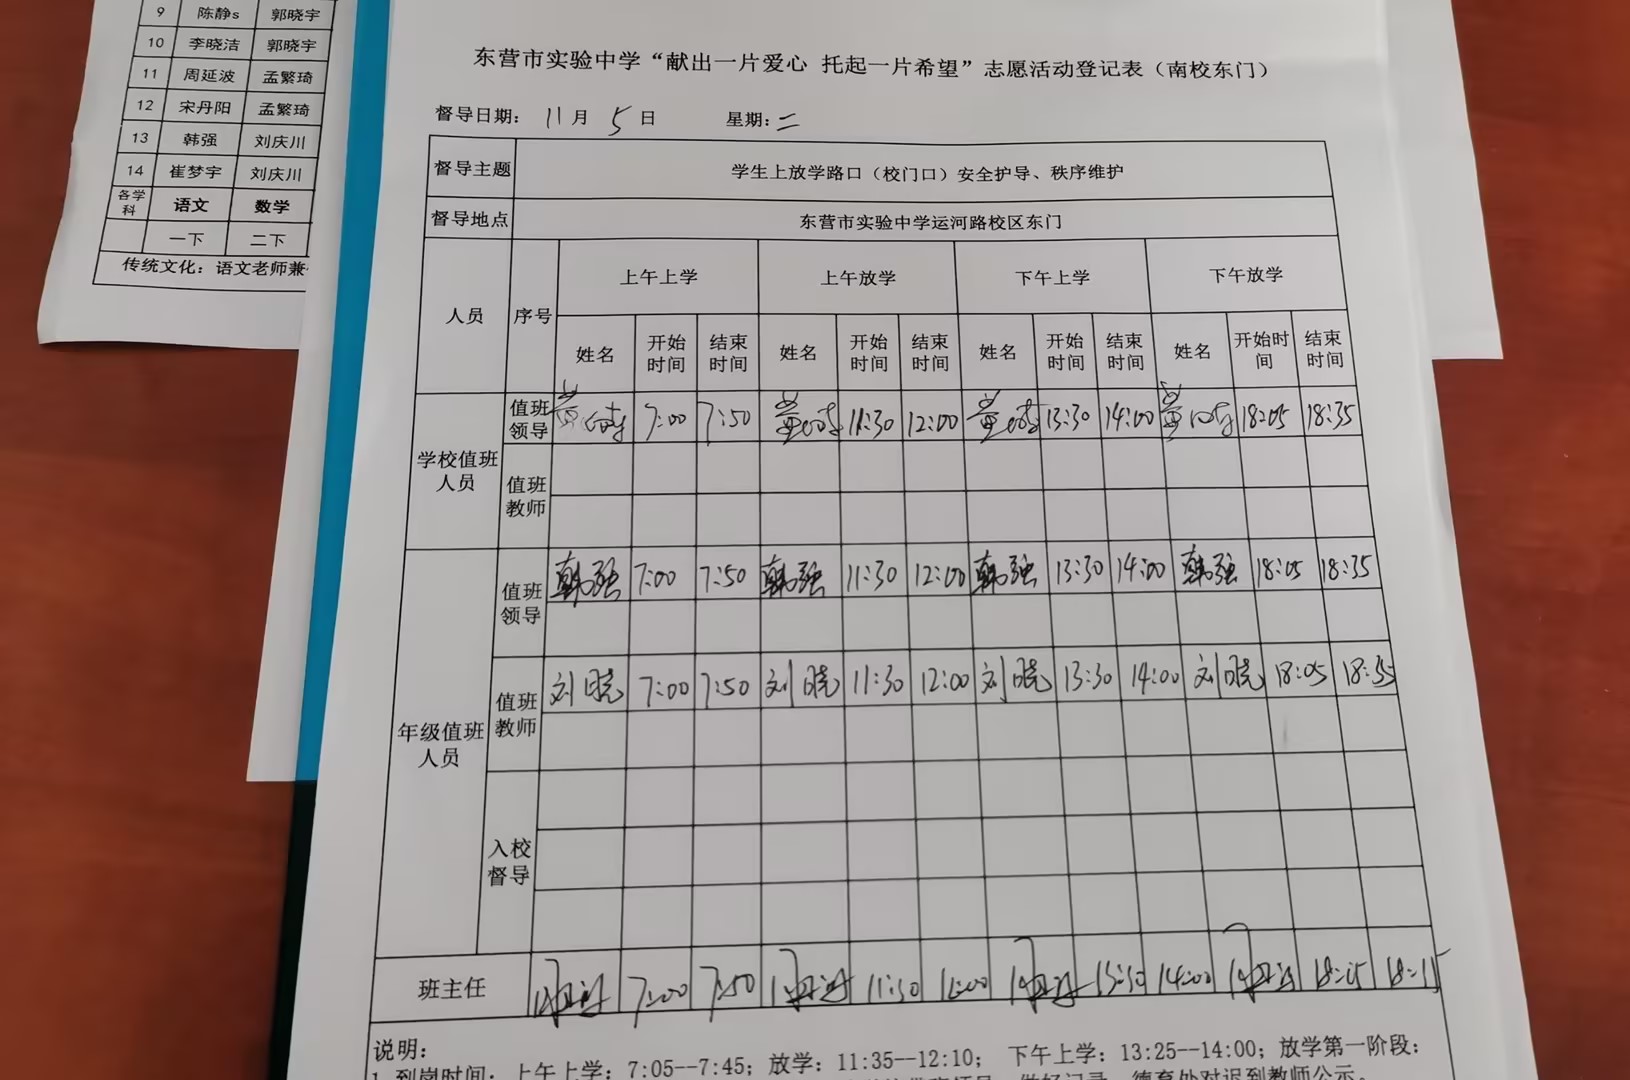 9 陈静s 郭晓宇
10 李晓洁 郭晓宇
11 周延波 孟繁琦
12 宋丹阳 孟繁琦
13 韩强 刘庆川
14 崔梦宇 刘庆川
各学科 语文 数学
一下 二下
传统文化：语文老师兼
东营市实验中学“献出一片爱心 托起一片希望”志愿活动登记表（南校东门）
督导日期： 11月 5日 星期：二
督导主题 学生上放学路口（校门口）安全护导、秩序维护
督导地点 东营市实验中学运河路校区东门
人员 序号 上午上学 上午放学 下午上学 下午放学
姓名 开始时间 结束时间 姓名 开始时间 结束时间 姓名 开始时间 结束时间 姓名 开始时间 结束时间
学校值班人员 值班领导 7:00 7:50 11:30 12:00 13:30 14:00 18:05 18:35
值班教师
年级值班人员 值班领导 韩强 7:00 7:50 韩强 11:30 12:00 韩强 13:30 14:00 韩强 18:05 18:35
值班教师 刘晓 7:00 7:50 刘晓 11:30 12:00 刘晓 13:30 14:00 刘晓 18:05 18:35
入校督导
班主任 7:00 7:50 11:30 13:30 14:00
说明：
1.到岗时间：上午上学：7:05--7:45；放学：11:35--12:10； 下午上学：13:25--14:00；放学第一阶段：
做好记录，德育处对迟到教师公示。